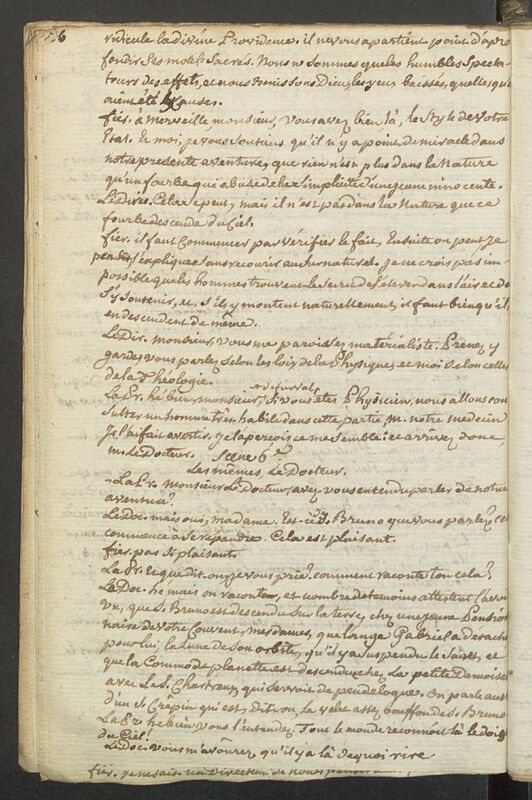 6
ridicule la divine Providence. il ne vous apartient point d'apro
fondir ses motifs Sacrés. Nous ne Sommes que les humbles Specta-
teurs des effets, et nous benissons Dieu, les yeux baissés, quelles qu'
aient été causes.
fier. à merveille, monsieur, vous avez bien là, le Style de votre
Etat. Et moi, je vous Soutiens qu'il n'y a point de miracle dans
notre presente aventure, que rien n'est plus dans la Nature
qu'un fourbe qui abuse de la Simplicité d'une jeune innocente.
Le Dir. Cela se peut, mais il n'est pas dans la Nature que ce
fourbe descende du Ciel.
fier. il faut commencer par verifier le fait, Ensuite on peut je
pense l'expliquer Sans recourir au Surnaturel. Je ne crois pas im-
possible que les hommes trouvent le Secret de s'élever dans l'air et de
s'y Soutenir, et, s'ils y montent naturellement, il faut bien qu'il
en descendent de même.
Le Dir. monsieur, vous me paroissez materialiste. Prenez y
garde, vous parlez selon les loix de la Physique, et moi selon celles
de la Theologie.
La Pr. hé bien, monsieur, Si vous etes Physicien, nous allons con
Sulter un homme très habile dans cette partie, M. notre medecin
Je l'ai fait avertir. Je l'aperçois ce me Semble: et arrivez donc
m. Le Docteur. Scene 6e
Les mêmes, Le Docteur.
La Pr. monsieur Le Docteur, avez-vous entendu parler de notre
aventure?
Le Doc. mais oui, madame. Est-ce de S. Bruno que vous parlez?
commence à Se repandre. Cela est plaisant.
fier. pas Si plaisant.
La Pr. Et que dit-on, je vous prie? comment raconte t'on cela?
Le Doc. hé mais on raconte, et nombre de temoins attestent l'avoir
vu, que S. Bruno est descendu Sur la terre, chez une jeune Pension
naire de votre Couvent, mesdames, que l'ange Gabriel a detaché
pour lui la Lune de Son orbite, qu'il y a Suspendu le Saint, et
que la Commode planette est descendue chez la petite Demoiselle
avec Le S. Chartreux qui servoit de pendeloque. On parle aussi
d'un S. Crêpin qui est, dit-on, le valet assez bouffon de S. Bruno
La Pr. hé bien vous l'entendez. Tout le monde reconnoit là le doigt
du Ciel!
Le Doc. vous m'avoûrez qu'il y a là de quoi rire
fier. Je ne sais. un Directeur de